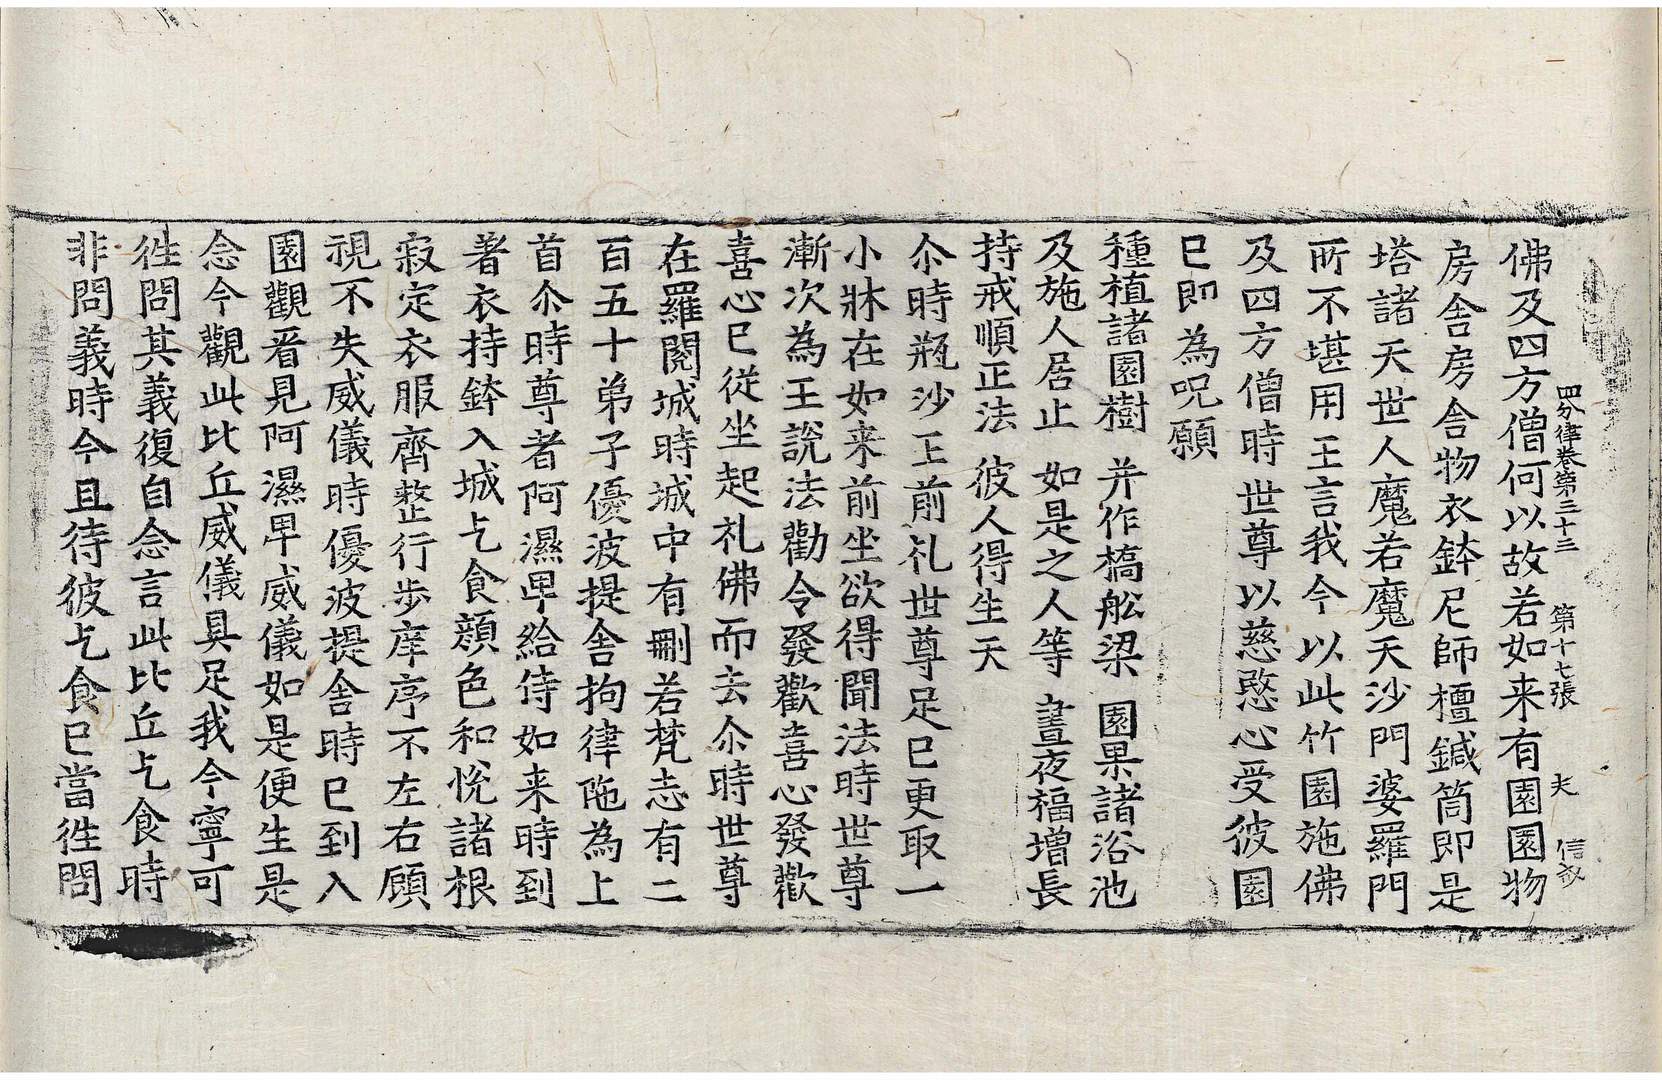 四分律卷第三十三 第十七張 夫 信敬
佛及四方僧何以故若如来有園園物
房舍房舍物衣鉢尼師檀鍼筒即是
塔諸天世人魔若魔天沙門婆羅門
所不堪用王言我今以此竹園施佛
及四方僧時世尊以慈愍心受彼園
已即為呪願
種植諸園樹 并作橋舩梁 園果諸浴池
及施人居止 如是之人等 晝夜福增長
持戒順正法 彼人得生天
尒時瓶沙王前礼世尊足已更取一
小牀在如来前坐欲得聞法時世尊
漸次為王說法勸令發歡喜心發歡
喜心已從坐起礼佛而去尒時世尊
在羅閱城時城中有刪若梵志有二
百五十弟子優波提舍拘律陁為上
首尒時尊者阿濕卑給侍如来時到
著衣持鉢入城乞食顔色和悅諸根
寂定衣服齊整行步庠序不左右顧
視不失威儀時優波提舍時已到入
園觀看見阿濕卑威儀如是便生是
念今觀此比丘威儀具足我今寧可
徃問其義復自念言此比丘乞食時
非問義時今且待彼乞食已當徃問